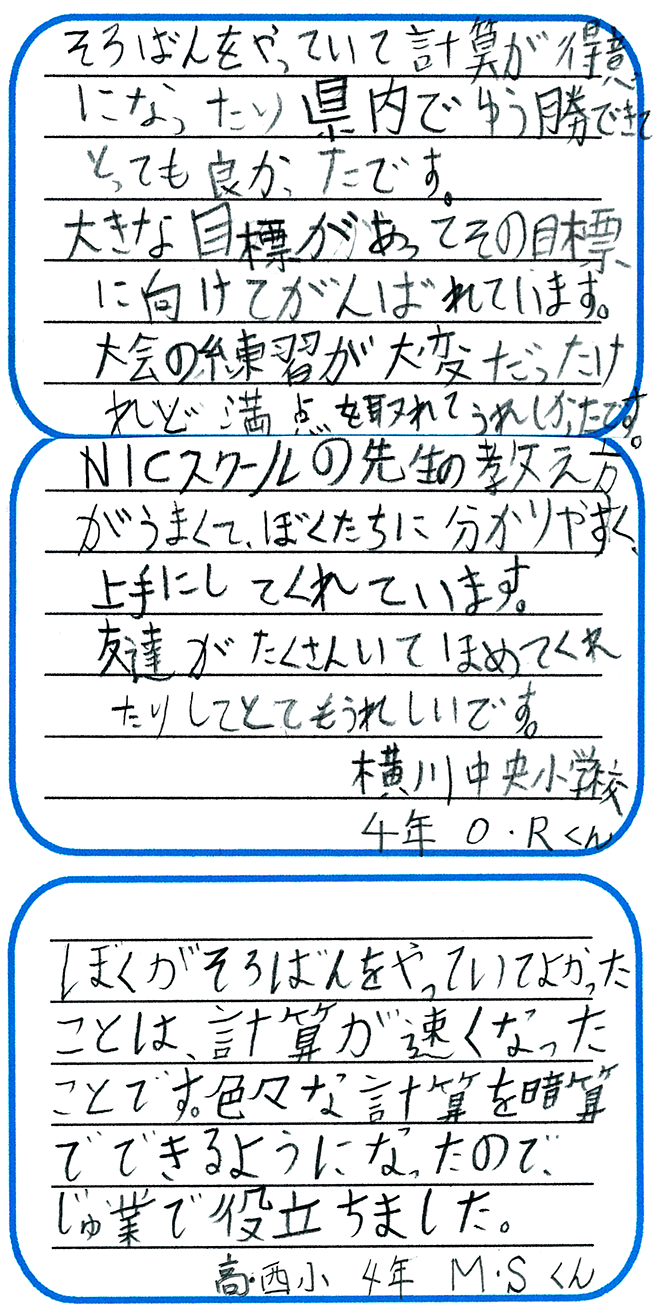 そろばんをやっていて計算が得意
になったり県内でゆう勝できて
とっても良かったです。
大きな目標があってその目標
に向けてがんばれています。
大会の練習が大変だったけ
れど満点を取れてうれしかったです。
NICスクールの先生の教え方
がうまくて、ぼくたちに分かりやすく、
上手にしてくれています。
友達がたくさんいてほめてくれ
たりしてとてもうれしいです。
横川中央小学校
4年 O・Rくん
ぼくがそろばんをやっていてよかった
ことは、計算が速くなった
ことです。色々な計算を暗算
でできるようになったので、
じゅ業で役立ちました。
高・西小 4年 M・Sくん